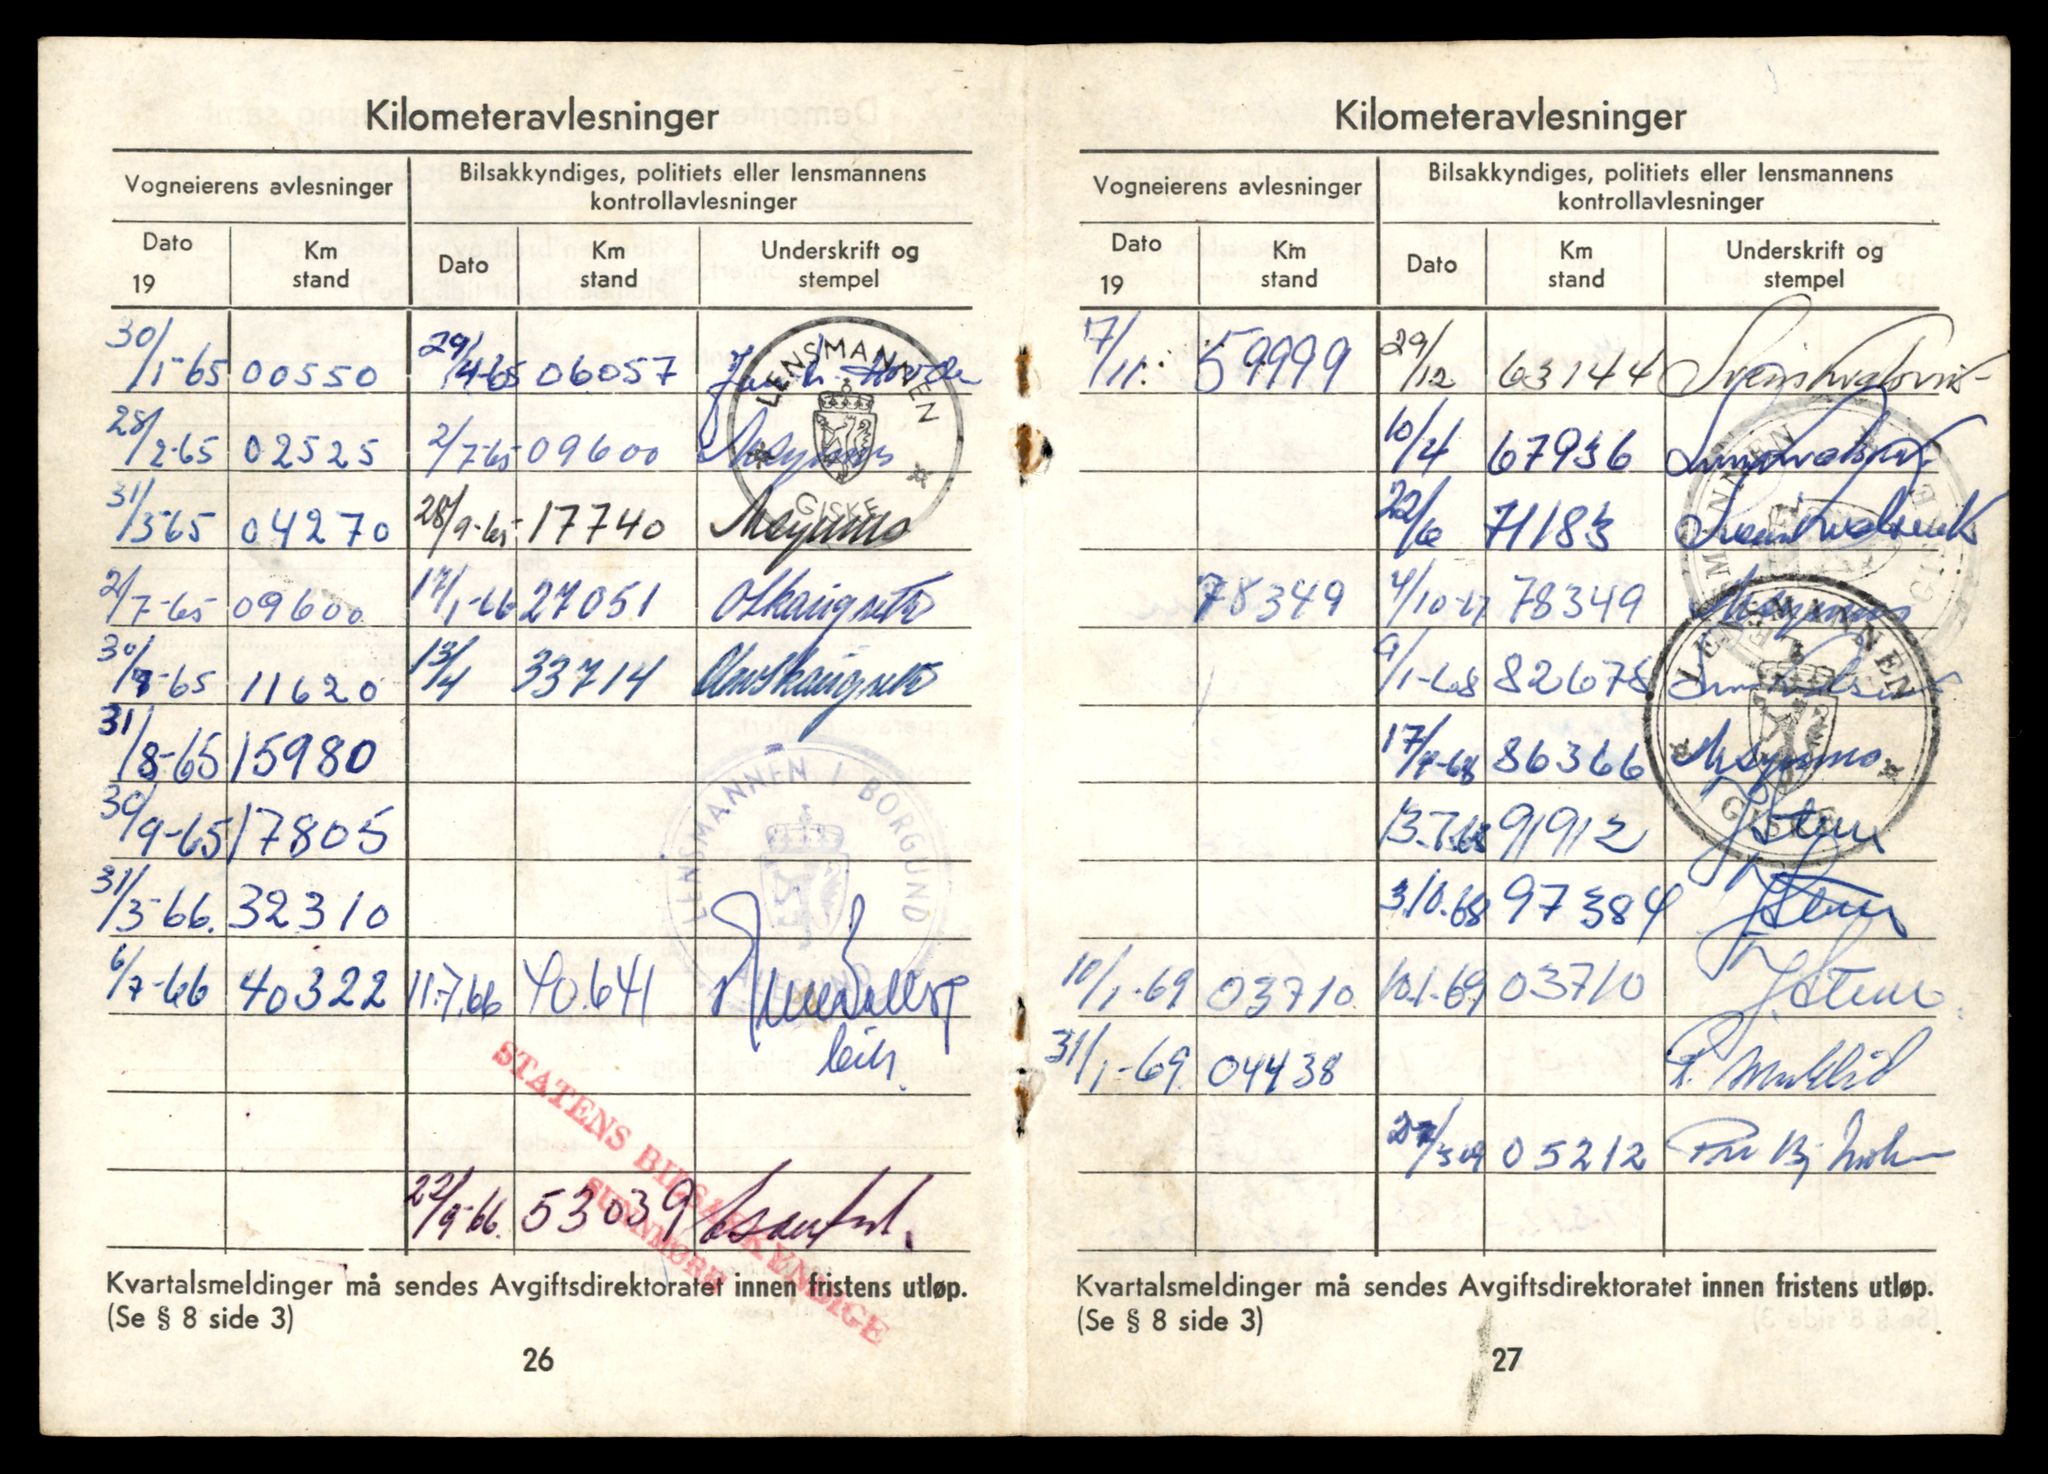 Kilometeravlesninger
Vogneierens avlesninger
Bilsakkyndiges, politiets eller lensmannens
kontrollavlesninger
Dato
19
Km
stand
Dato
Km
stand
Underskrift og
stempel
30/1-65 00550 29/4-65 06057
28/2-65 02525 2/7-65 09600
31/3-65 04270 28/9-65 17740
2/7-65 09600 17/1-66 27051
30/7-65 11620 13/4 33714
31/8-65 15980
30/9-65 17805
31/3-66. 32310
6/7-66 40322 11.7.66 40.641
22/9-66. 53039
LENSMANNEN
GISKE
LENSMANNEN I BORGUND
STATENS BILSAKKYNDIGE
SUNNMØRE
Kvartalsmeldinger må sendes Avgiftsdirektoratet innen fristens utløp.
(Se § 8 side 3)
26
Kilometeravlesninger
Vogneierens avlesninger
Bilsakkyndiges, politiets eller lensmannens
kontrollavlesninger
Dato
19
Km
stand
Dato
Km
stand
Underskrift og
stempel
7/11. 59999 29/12 63144
10/4 67936
22/6 71183
78349 4/10-67 78349
9/1-68 82678
17/4-68 86366
13.7.68 91912
3.10.68 97384 J Stene
10/1-69 03710. 10.1.69 03710 J. Stene
31/1-69. 04438
27/3 69 05212
LENSMANNEN
GISKE
LENSMANNEN
GISKE
Kvartalsmeldinger må sendes Avgiftsdirektoratet innen fristens utløp.
(Se § 8 side 3)
27